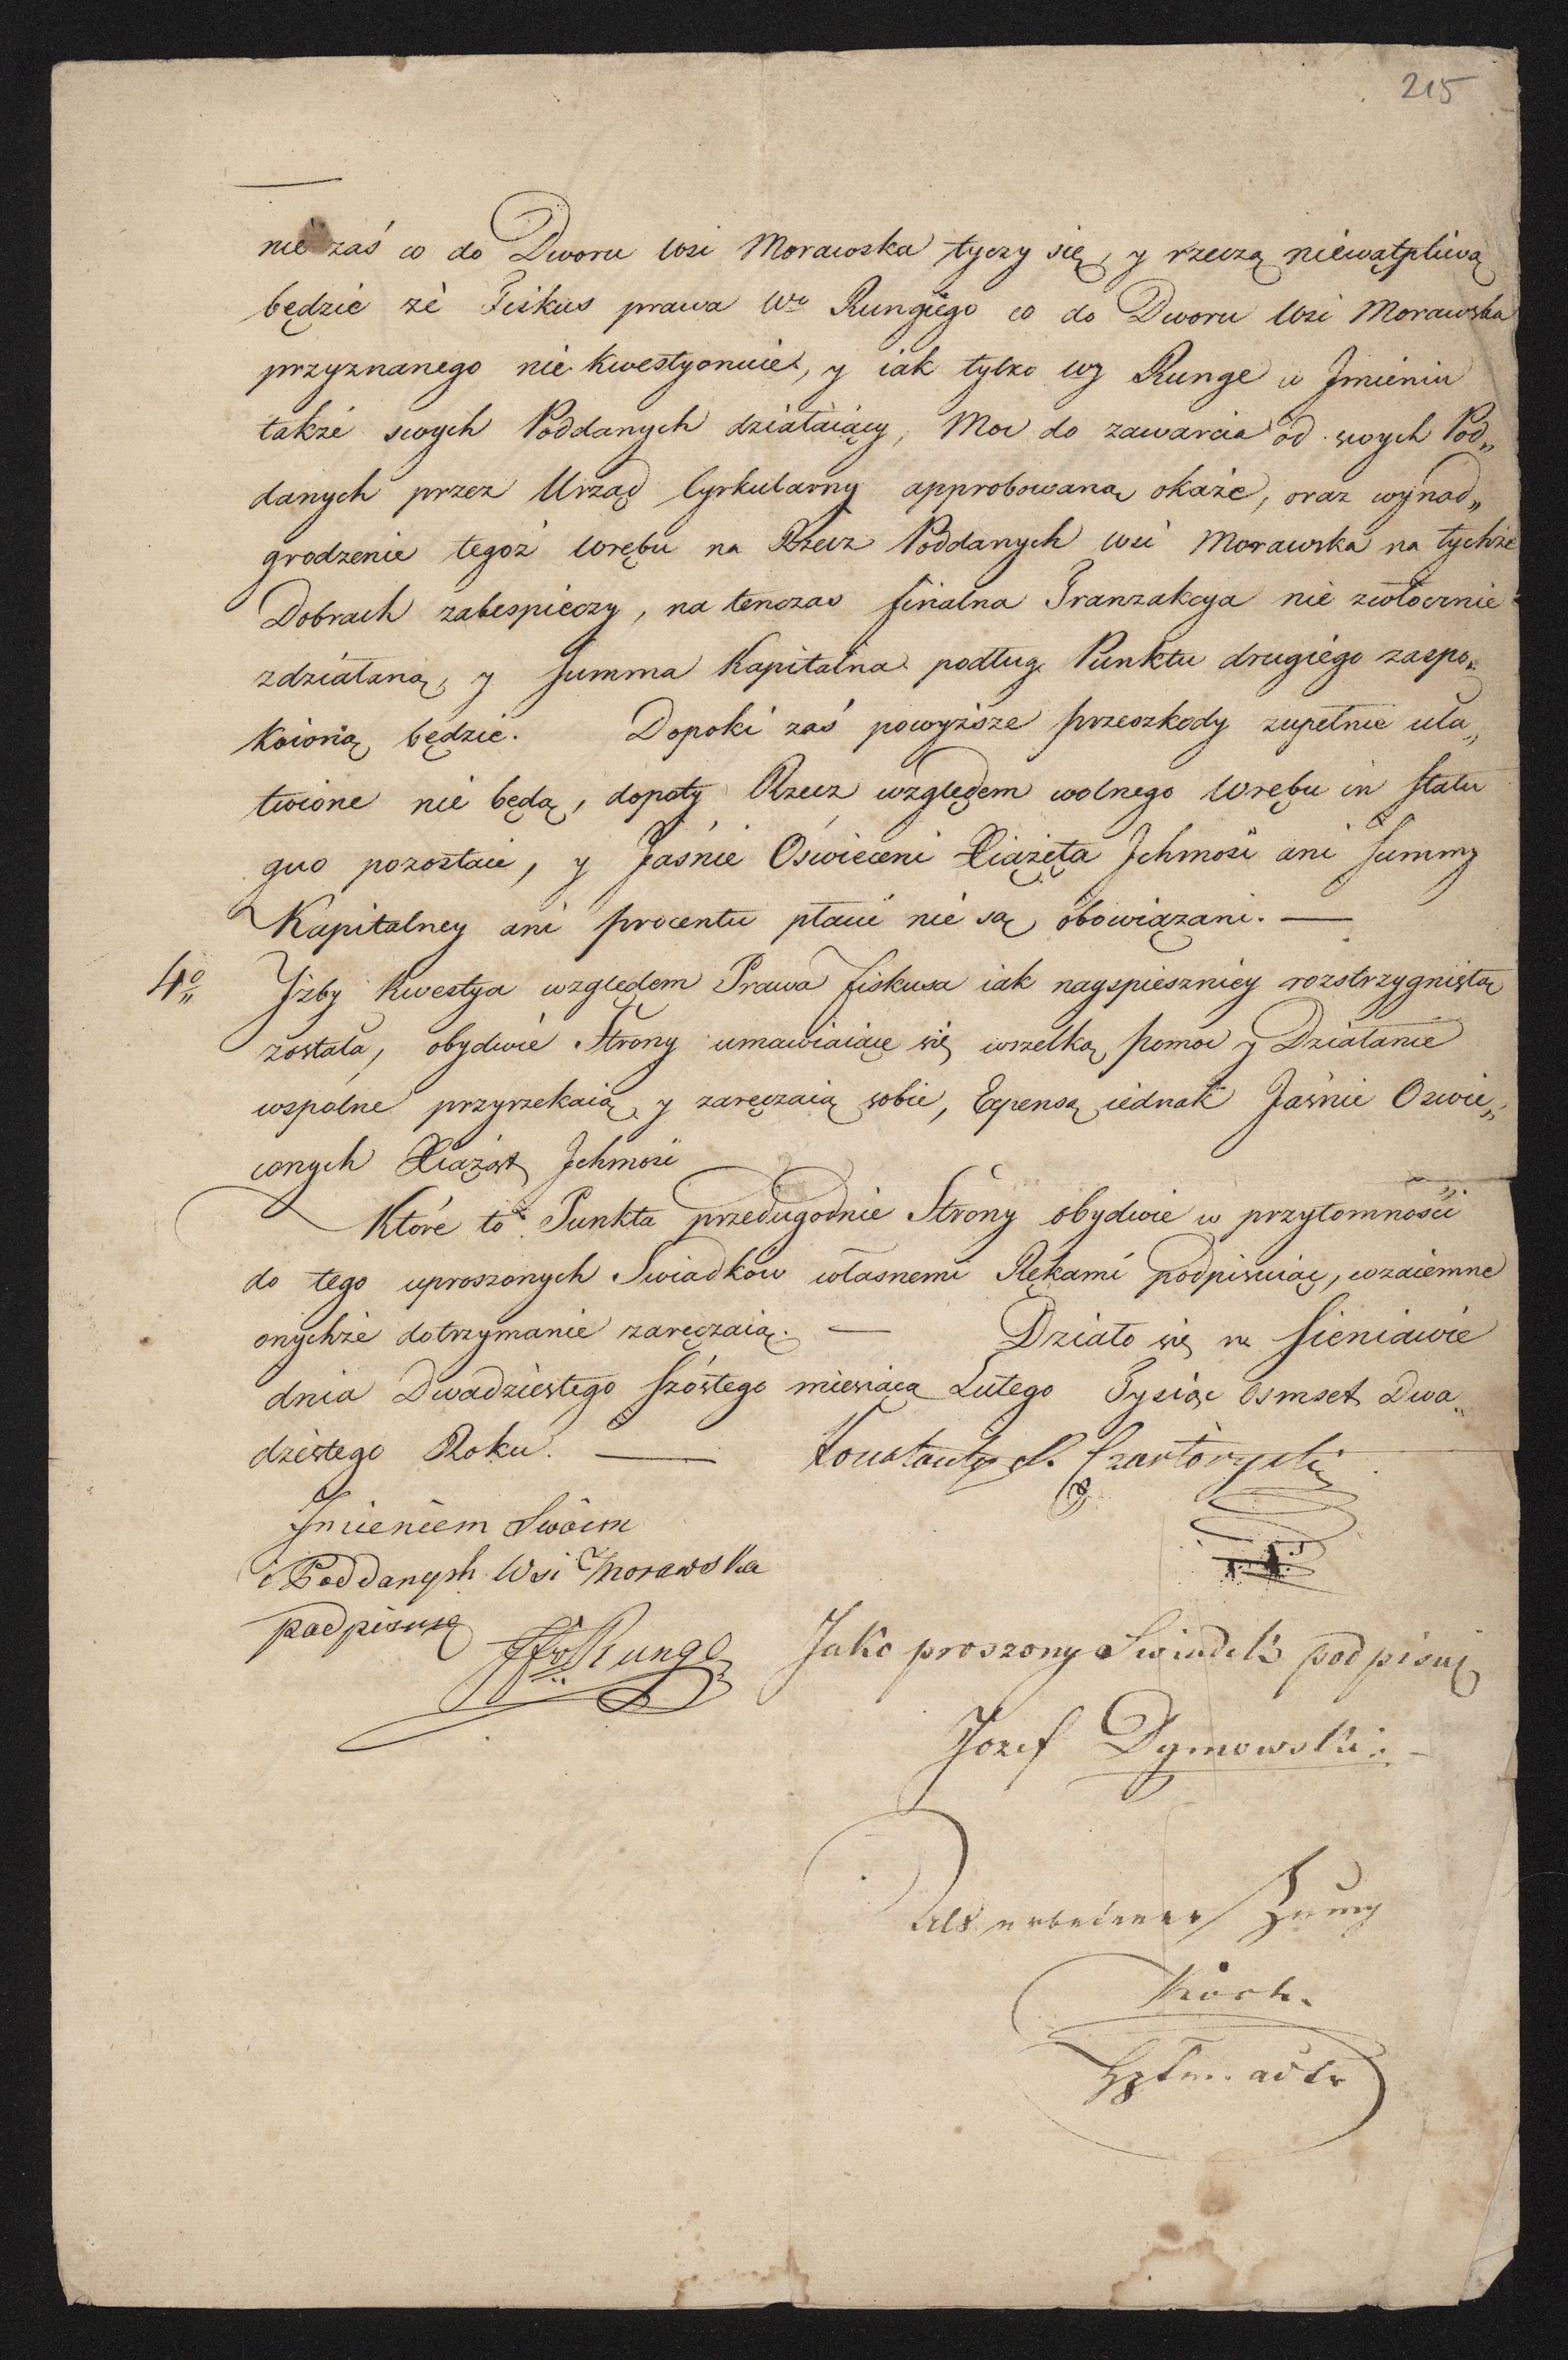 215
nie zaś co do Dworu wsi Morawska tyczy się, y rzeczą niewątpliwą
będzie że Fiskus prawa Wo Rungiego co do Dworu wsi Morawska
przyznanego nie kwestyonuie, y iak tylko Wy Runge w Jmieniu
także swych Poddanych działaiący, Moc do zawarcia od swych Pod„
danych przez Urząd Cyrkularny approbowaną okaże, oraz wynad„
grodzenie tegoż Wrębu na Rzecz Poddanych wsi Morawska na tychże
Dobrach zabespieczy, na tenczas finalna Tranzakcya nie zwłocznie
zdziałaną, y Summa Kapitalna podług Punktu drugiego zaspo„
koioną będzie. Dopoki zaś powyższe przeszkody zupełnie uła„
twione nie będą, dopoty Rzecz względem wolnego Wrębu in Statu
quo pozostaie, y Jaśnie Oświeceni Xiążęta Jchmość ani Summy
Kapitalney ani procentu płacić nie są obowiązani. —
4o„ Jżby kwestya względem Prawa Fiskusa iak nayspieszniey rozstrzygniętą
została, obydwie Strony umawiaiące się wszelką pomoc y Działanie
wspólne przyrzekaią, y zaręczaią sobie, Expensą iednak Jaśnie Oswie„
conych Xiążąt Jchmość
Które to Punkta przedugodnie Strony obydwie w przytomności
do tego uproszonych Swiadków własnemi Rękami podpisuiąc, wzaiemne
onychże dotrzymanie zaręczaią. — Działo się w Sieniawie
dnia Dwadziestego Szóstego miesiąca Lutego Tysiąc Osmset Dwa„
dziestego Roku. — Konstanty X. Czartoryski
Jmieniem Swoim
i Poddanych Wsi Morawska
podpisuię
Runge
Jako proszony Swiadek podpisuię
Jozef Dymowski
Als erbetener Zeug
Koch